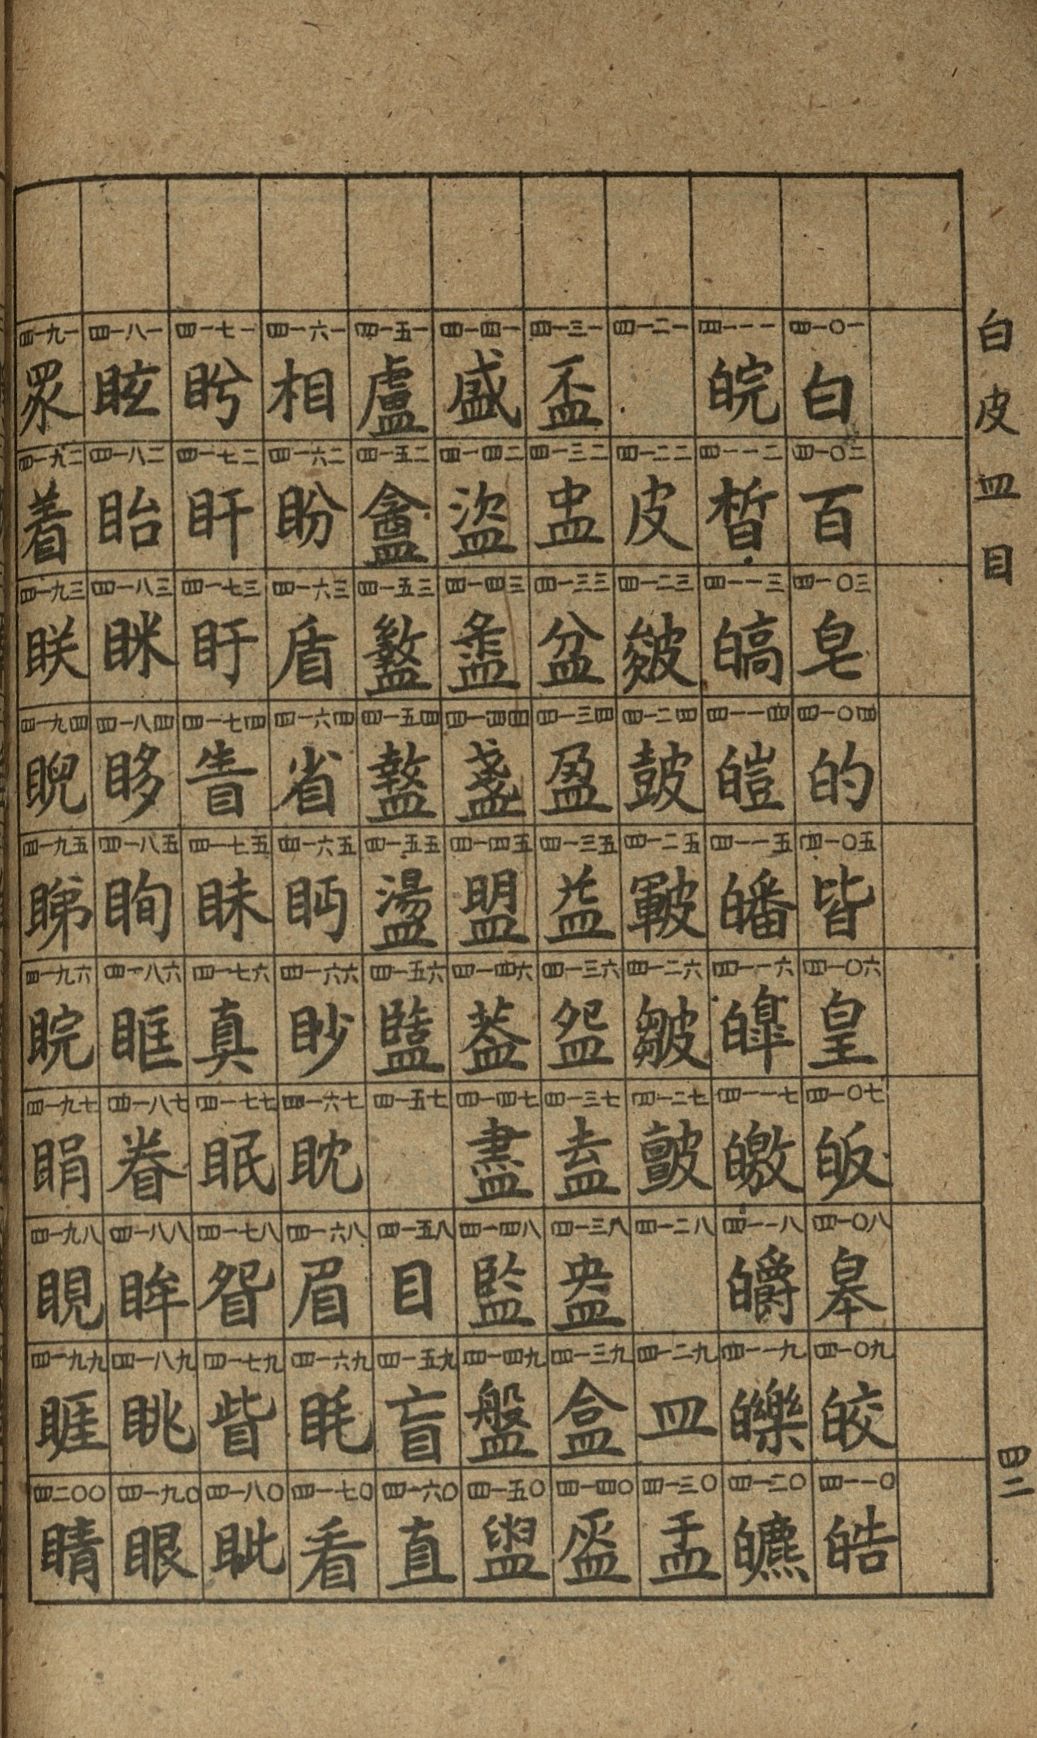 白皮皿目
四一〇一 白
四一〇二 百
四一〇三 皂
四一〇四 的
四一〇五 皆
四一〇六 皇
四一〇七 皈
四一〇八 皋
四一〇九 皎
四一一〇 皓
四一一一 皖
四一一二 皙
四一一三 皜
四一一四 皚
四一一五 皤
四一一六 皞
四一一七 皦
四一一八 皭
四一一九 皪
四一二〇 皫
四一二一
四一二二 皮
四一二三 皴
四一二四 皷
四一二五 皸
四一二六 皺
四一二七 皻
四一二八
四一二九 皿
四一三〇 盂
四一三一 盃
四一三二 盅
四一三三 盆
四一三四 盈
四一三五 益
四一三六 盌
四一三七 盍
四一三八 盎
四一三九 盒
四一四〇 盔
四一四一 盛
四一四二 盜
四一四三 盝
四一四四 盞
四一四五 盟
四一四六 盖
四一四七 盡
四一四八 監
四一四九 盤
四一五〇 盥
四一五一 盧
四一五二 盦
四一五三 盭
四一五四 盩
四一五五 盪
四一五六 盬
四一五七
四一五八 目
四一五九 盲
四一六〇 直
四一六一 相
四一六二 盼
四一六三 盾
四一六四 省
四一六五 眄
四一六六 眇
四一六七 眈
四一六八 眉
四一六九 眊
四一七〇 看
四一七一 盻
四一七二 盰
四一七三 盱
四一七四 眚
四一七五 眛
四一七六 真
四一七七 眠
四一七八 眢
四一七九 眥
四一八〇 眦
四一八一 眩
四一八二 眙
四一八三 眯
四一八四 眵
四一八五 眴
四一八六 眶
四一八七 眷
四一八八 眸
四一八九 眺
四一九〇 眼
四一九一 眾
四一九二 着
四一九三 眹
四一九四 睨
四一九五 睇
四一九六 睆
四一九七 睊
四一九八 睍
四一九九 睚
四二〇〇 睛
四二